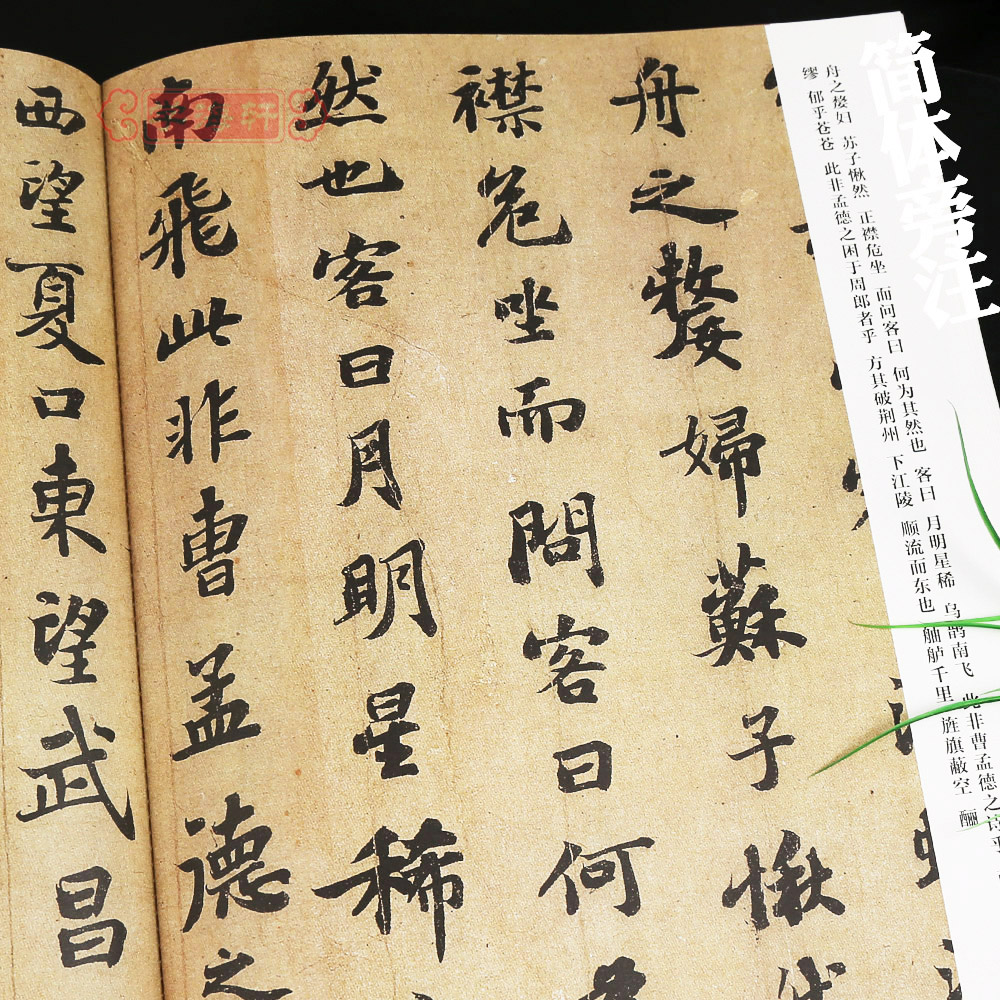 简体旁注
舟之嫠妇 苏子愀然 正襟危坐 而问客曰 何为其然也 客曰 月明星稀 乌鹊南飞 此非曹孟德之诗乎
缪 郁乎苍苍 此非孟德之困于周郎者乎 方其破荆州 下江陵 顺流而东也 舳舻千里 旌旗蔽空 酾
舟之嫠婦蘇子愀
襟危坐而問客曰何
然也客曰月明星稀
南飛此非曹孟德之
西望夏口東望武昌